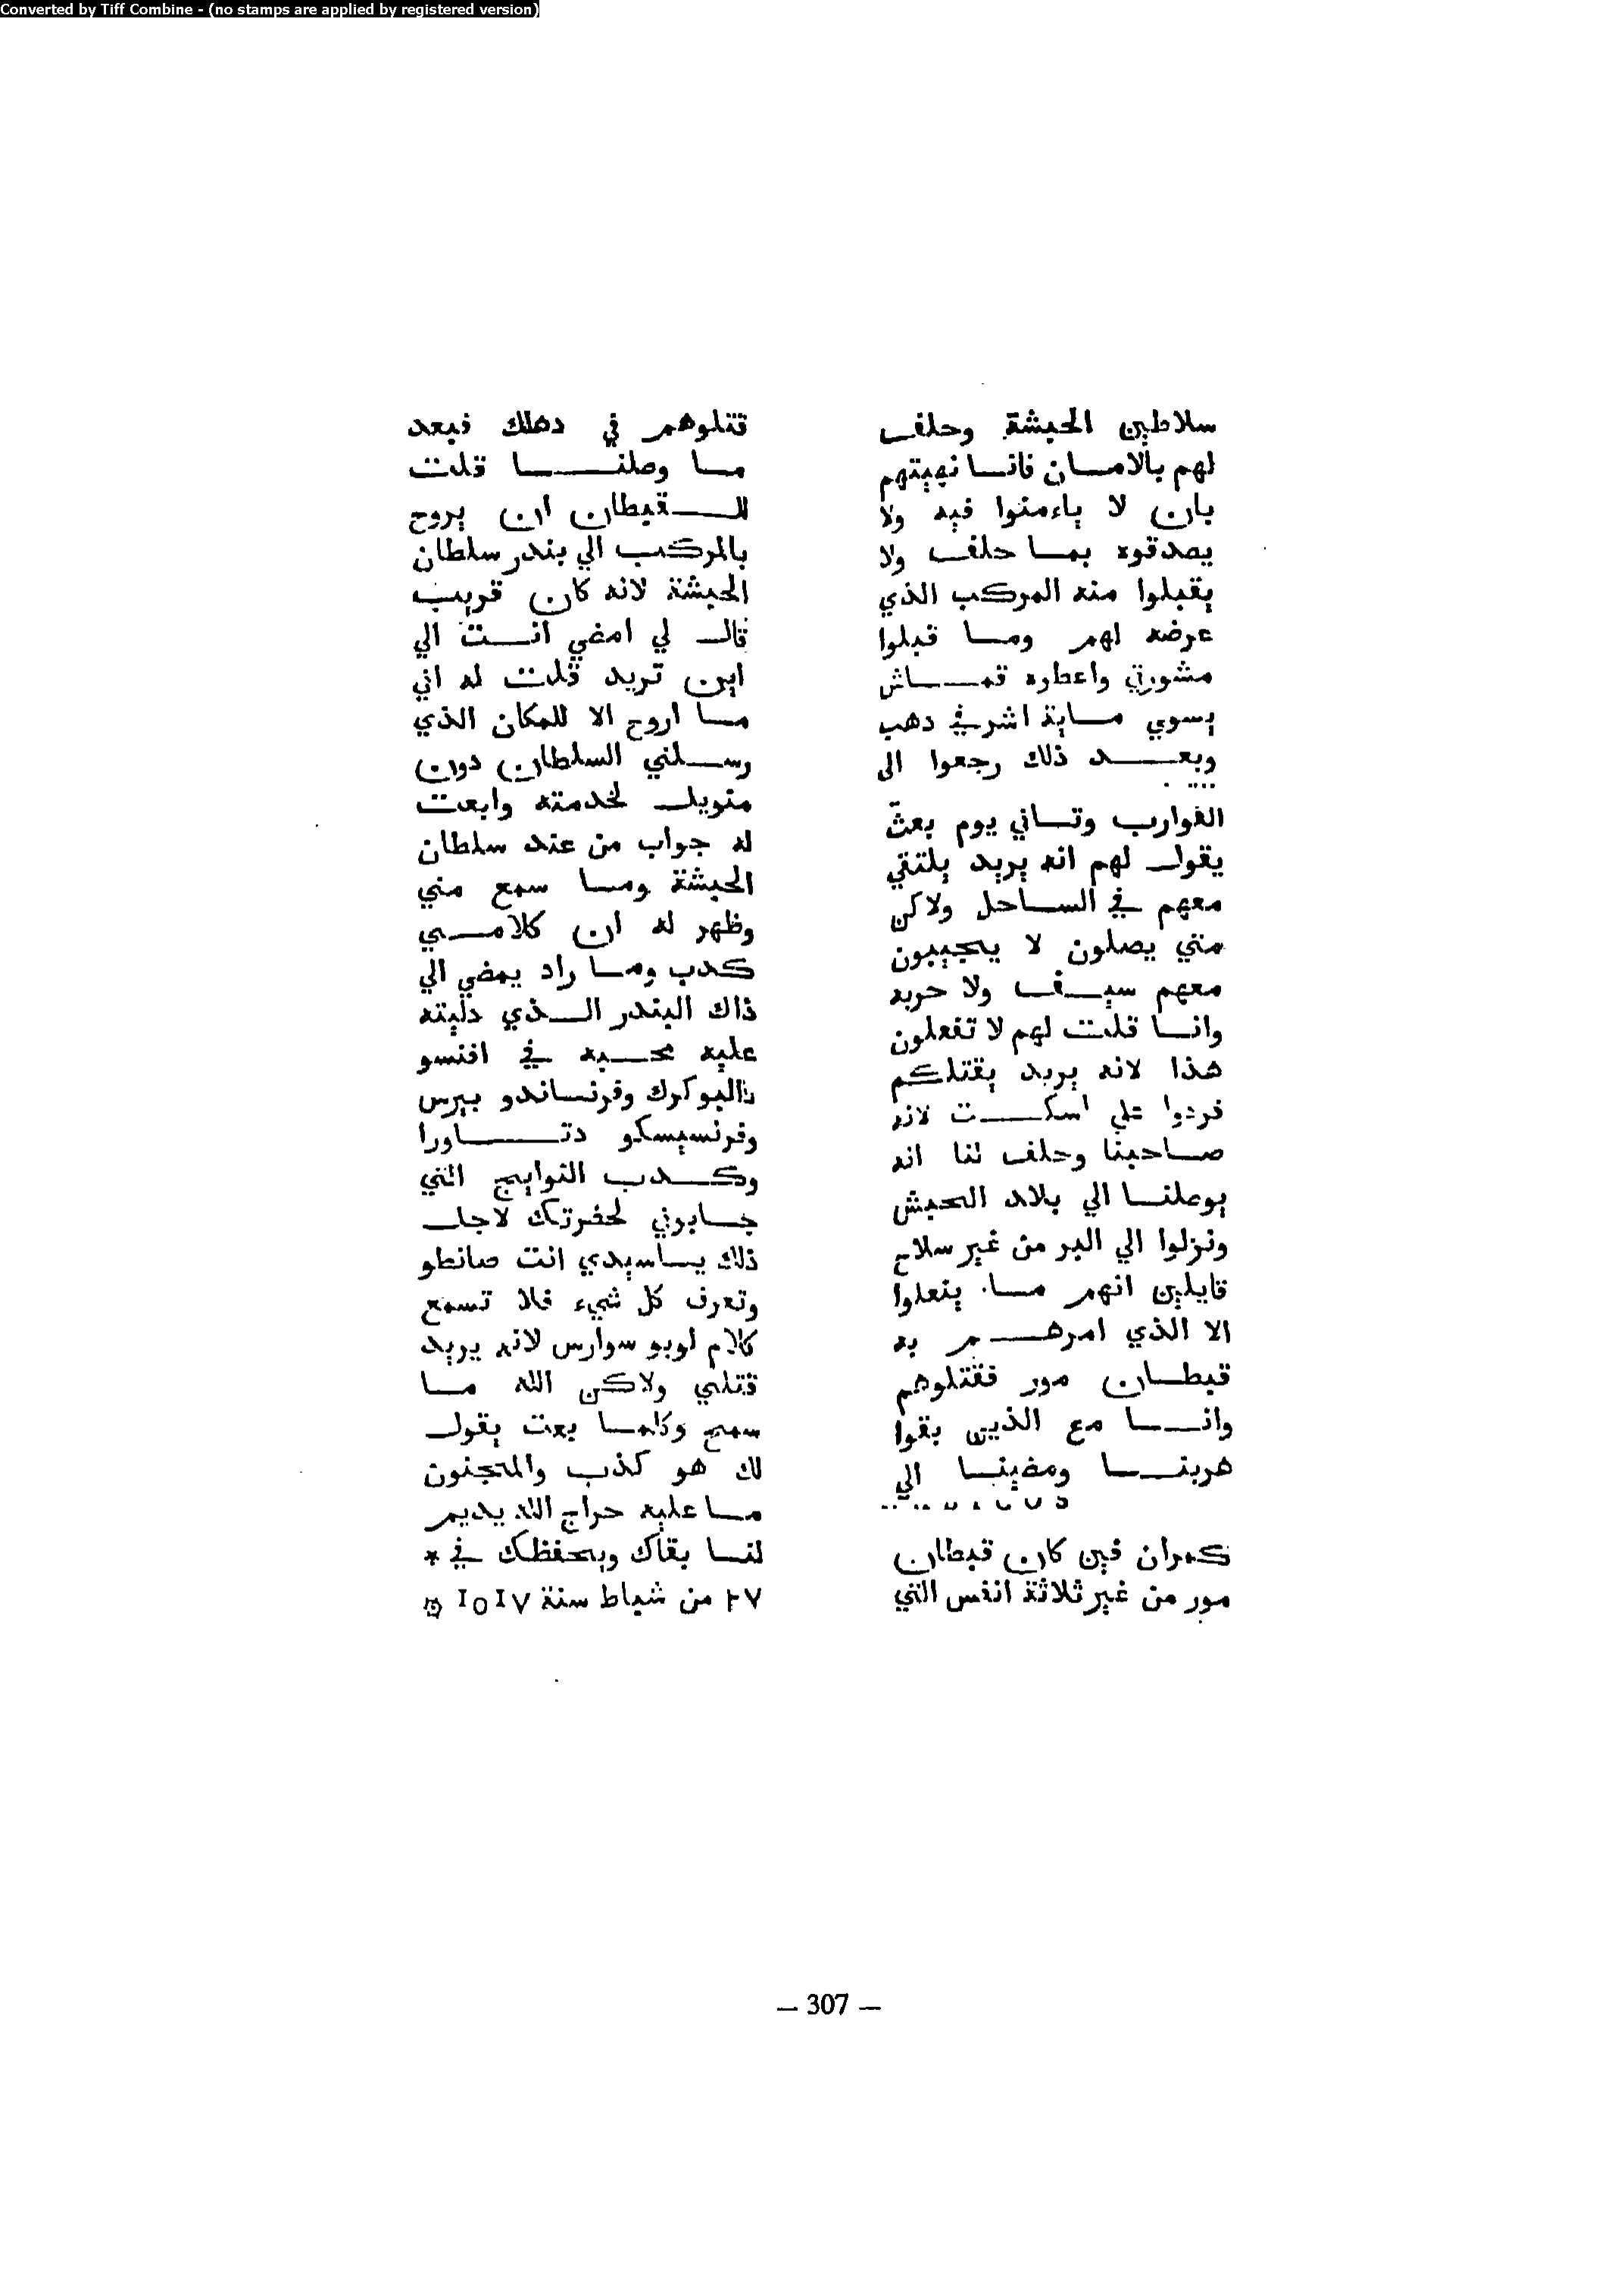 Converted by Tiff Combine - (no stamps are applied by registered version)
سلاطين الحبشة وحلف
لهم بالامان فانا نهيتهم
بان لا ياءمنوا فيه ولا
يصدقوه بما حلف ولا
يقبلوا منه المركب الذي
عرضه لهم وما قبلوا
مشورتي واعطاره قماش
يسوي ماية اشرفي دهب
وبعد ذلك رجعوا الى
القوارب وتاني يوم بعث
يقول لهم انه يريد يلتقي
معهم في الساحل ولاكن
متي يصلون لا يجيبون
معهم سيف ولا حربه
وانا قلت لهم لا تفعلون
هذا لانه يريد يقتلكم
فردوا علي اسكت لانه
صاحبنا وحلف لنا انه
يوصلنا الي بلاد الحبش
ونزلوا الي البر من غير سلاح
قايلين انهم ما يفعلوا
الا الذي امرهم به
قبطان مور فقتلوهم
وانا مع الذين بقوا
هربنا ومضينا الي
كمران فين كان قبطان
مور من غير ثلاثة انفس التي
قتلوهم في دهلك فبعد
ما وصلنا قلت
للقبطان ان يروح
بالمركب الي بندر سلطان
الحبشة لانه كان قريب
قال لي امضي انت الي
اين تريد قلت له اني
ما اروح الا للمكان الذي
رسلني السلطان دون
منويل لخدمته وابعت
له جواب من عند سلطان
الحبشة وما سمع مني
وظهر له ان كلامي
كدب وما راد يمضي الي
ذاك البندر الذي دليته
عليه محبه في افنسو
دالبوكرك وفرنساندو بيرس
وفرنسيسكو دتاورا
وكدب التوابيج التي
جابوني لحضرتك لاجل
ذلك ياسيدي انت صانطو
وتعرف كل شيء فلا تسمع
كلام لوبو سوارس لانه يريد
قتلي ولاكن الله ما
سمح وكلما بعت يقول
لك هو كذب والمجنون
ما عليه حراج الله يديم
لنا بقاك ويحفظك في *
٢٧ من شباط سنة ١٥١٧
— 307 —